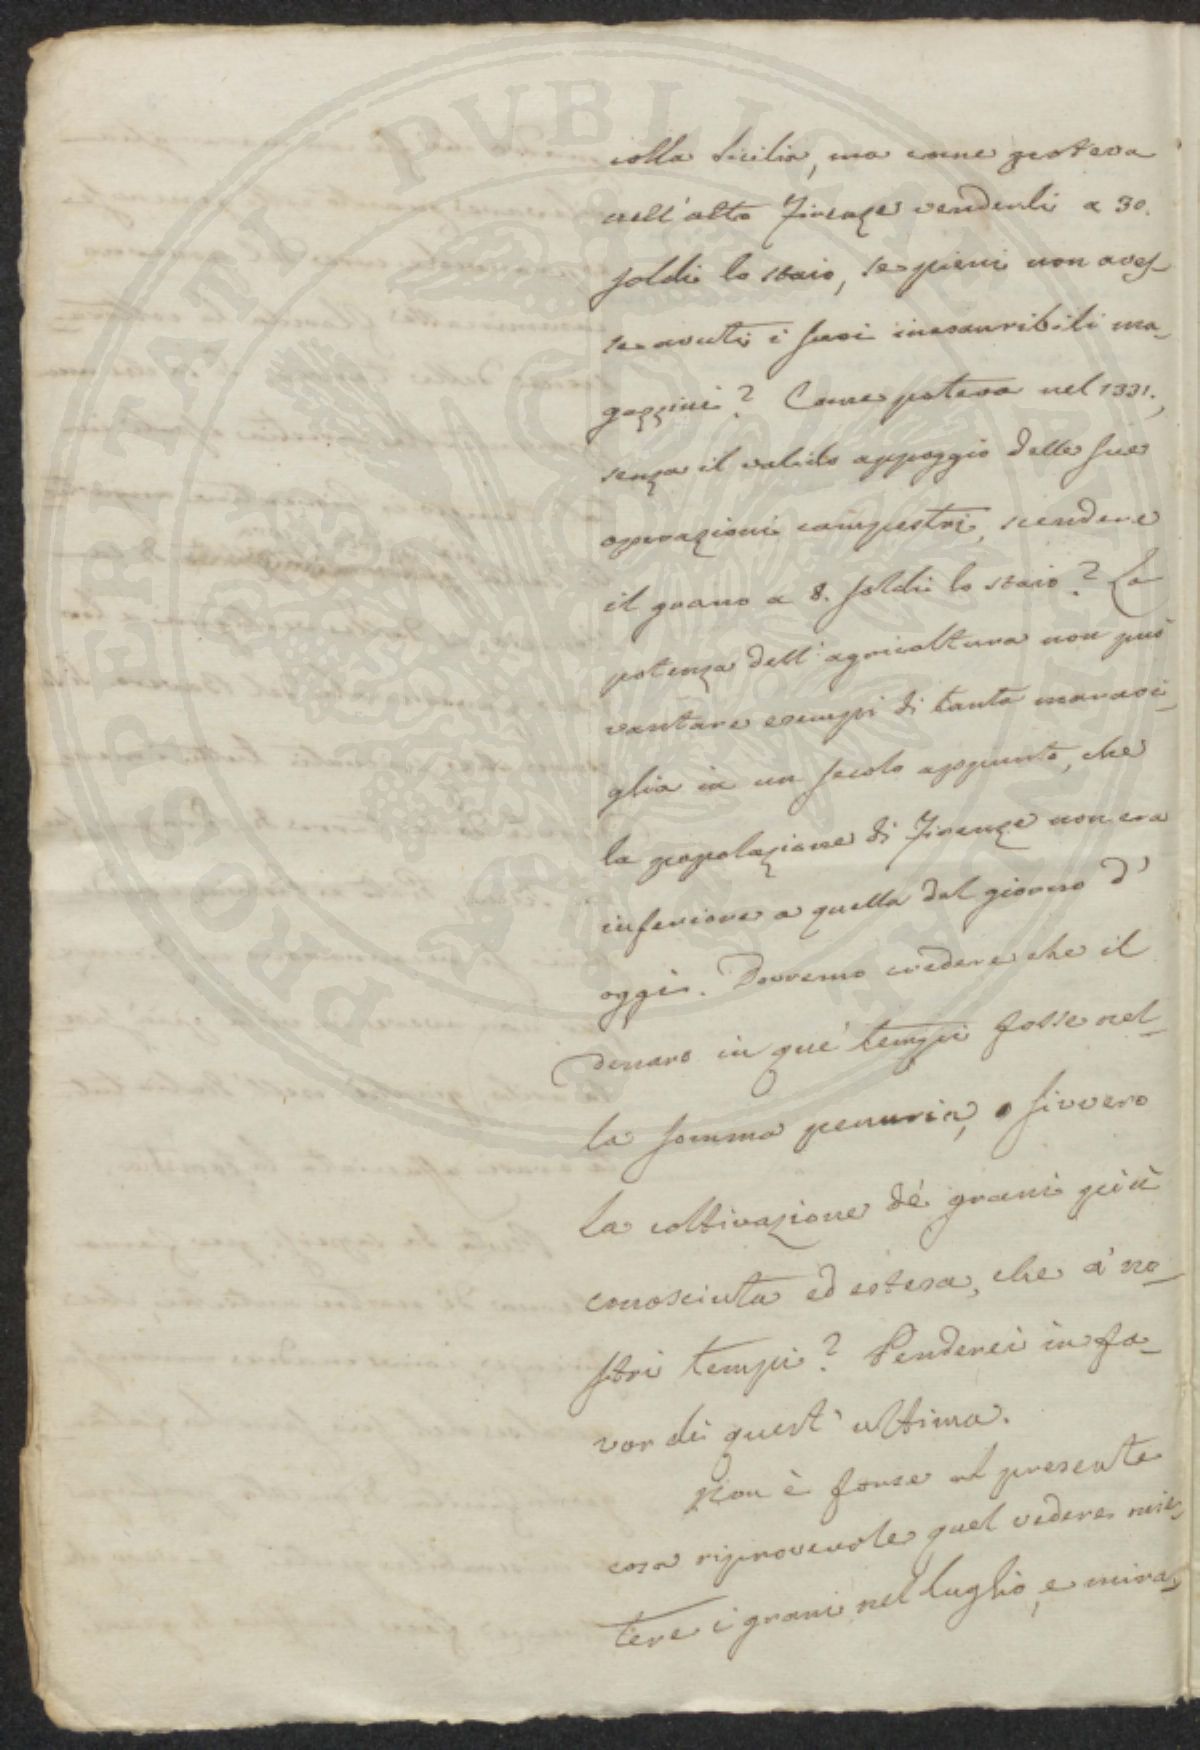 colla Sicilia, ma come poteva
nell'alto Firenze venderli a 30.
soldi lo staio, se pieni non aves-
se avuti i suoi inesauribili ma-
gazzini? Come poteva nel 1331.,
senza il valido appoggio delle sue
operazioni campestri, scendere
il grano a 8. soldi lo staio? La
potenza dell'agricoltura non può
vantare esempi di tanta maravi-
glia in un secolo appunto, che
la popolazione di Firenze non era
inferiore a quella del giorno d'
oggi. Dovremo credere che il
denaro in que' tempi fosse nel-
la somma penuria, o sivvero
la coltivazione de' grani più
conosciuta ed estesa, che a' no-
stri tempi? Penderei in fa-
vor di quest'ultima.
Non è forse al presente
cosa riprovevole quel vedere mie-
tere i grani nel Luglio, e mira-
PVBLICAE
PROSPERITATI